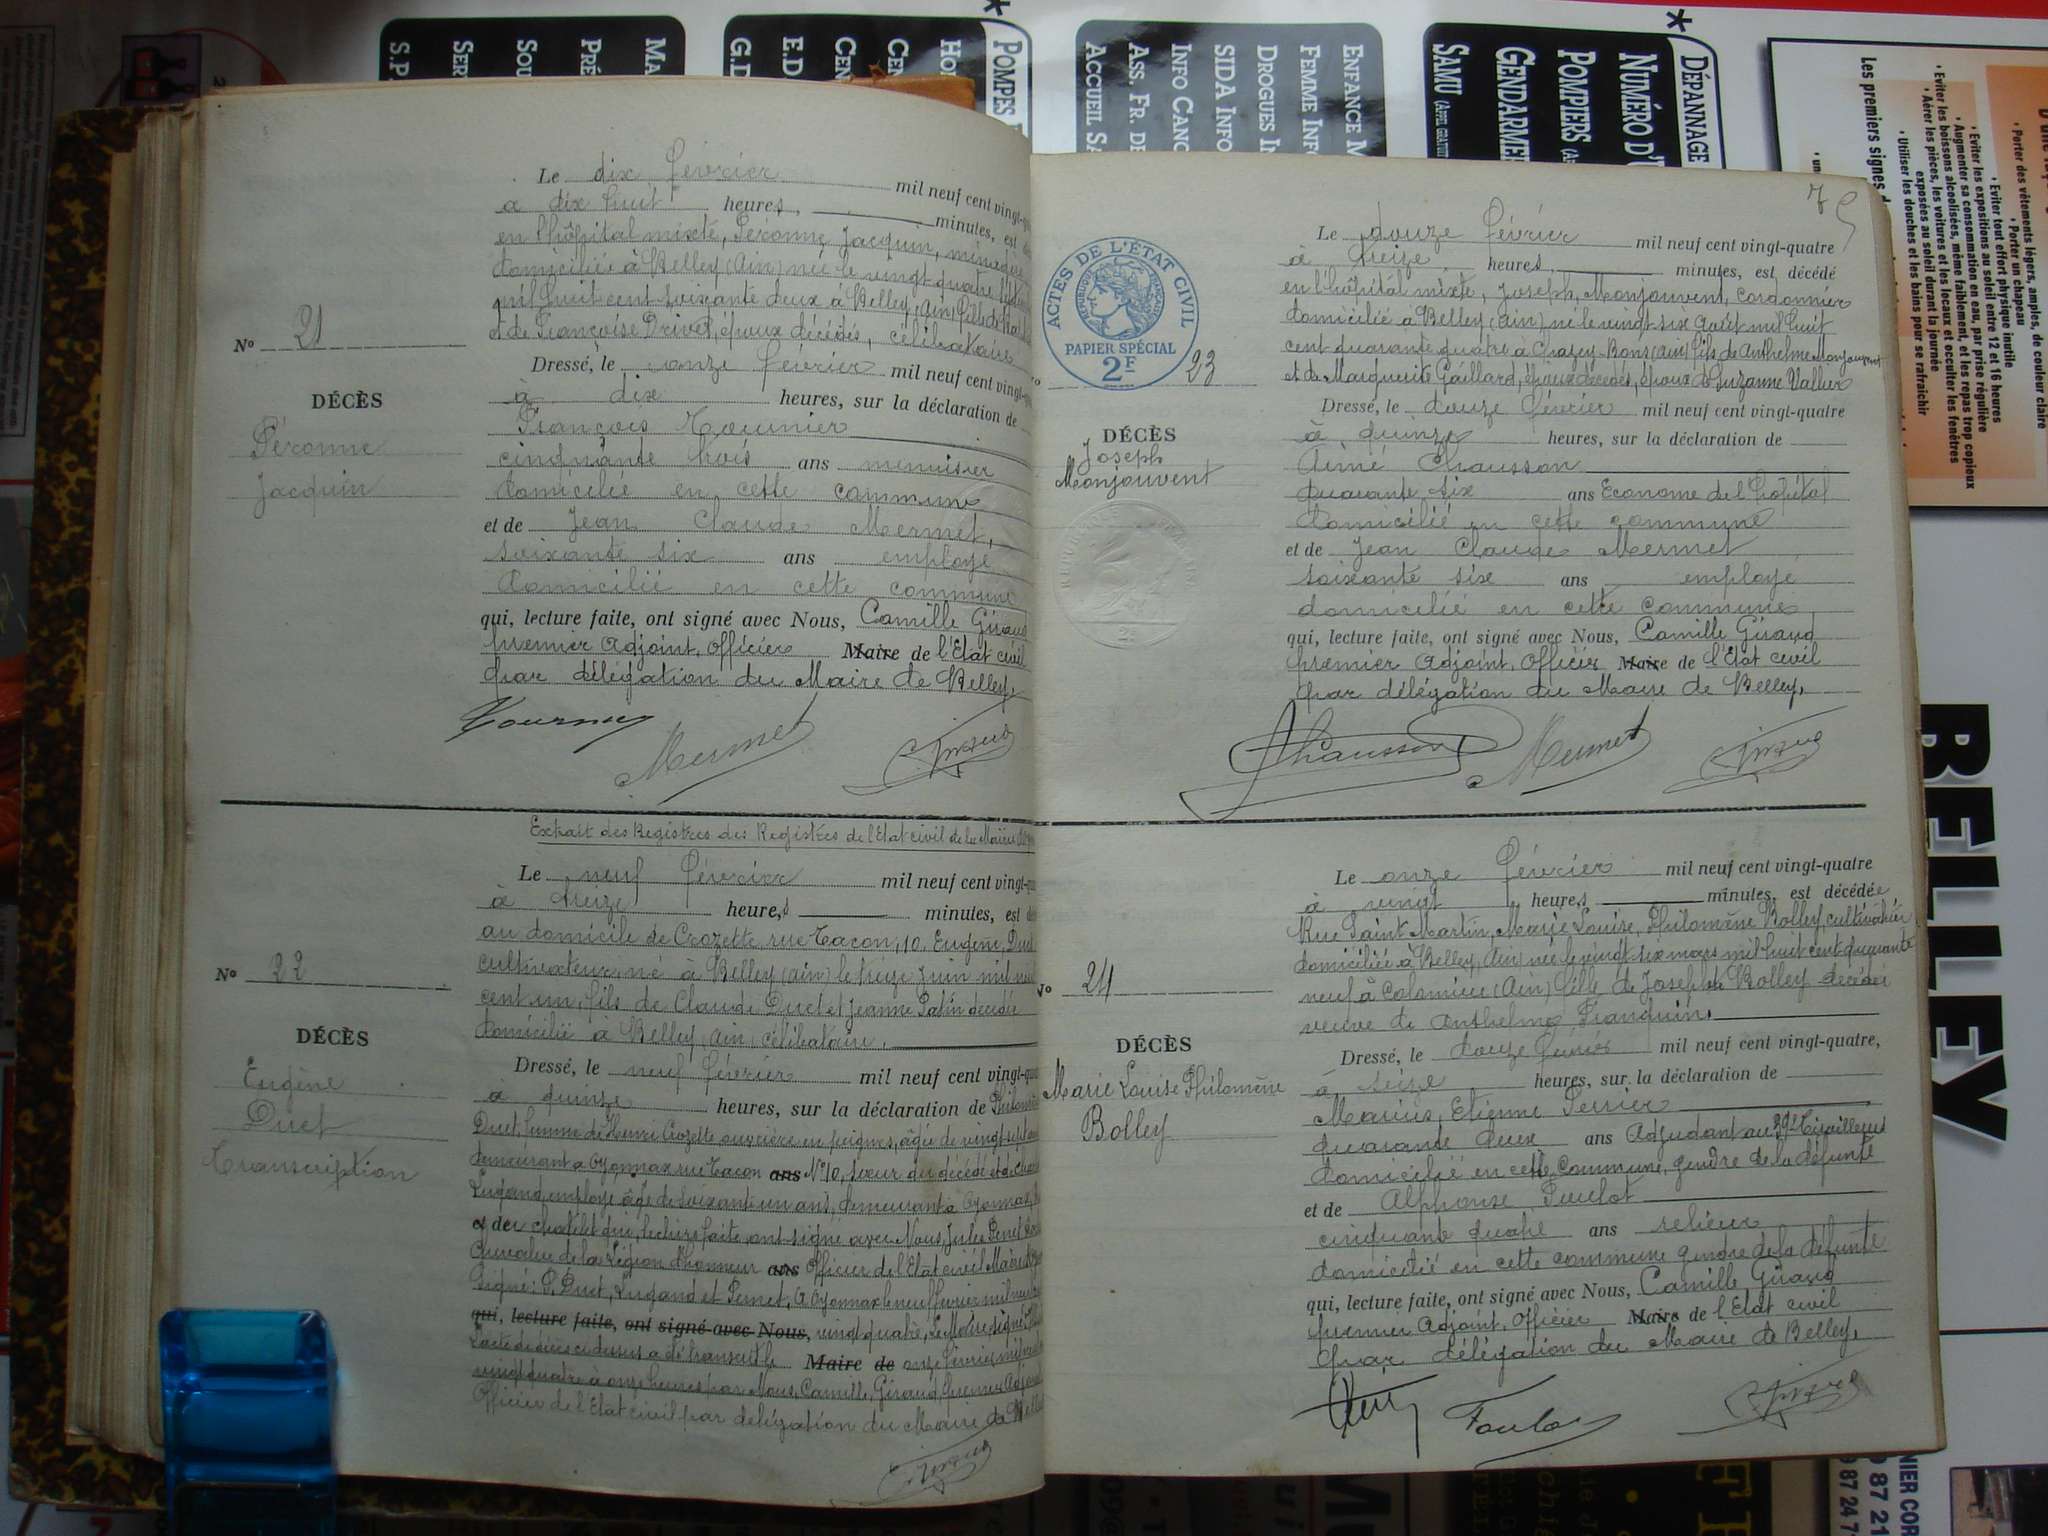 Le dix février mil neuf cent vingt-
à dix huit heures, minutes, est
en l'hôpital mixte, Péronne Jacquin, ménagère
domiciliée à Belley (Ain) née le vingt quatre
mil huit cent soixante deux à Belley (Ain) fille de
et de Françoise Drivet, époux décédés, célibataire
Nº 21
DÉCÈS
Péronne
Jacquin
Dressé, le onze février mil neuf cent vingt-
à dix heures, sur la déclaration de
François Tournier
cinquante trois ans menuisier
domicilié en cette commune
et de Jean Claude Mermet,
soixante six ans employé
domicilié en cette commune
qui, lecture faite, ont signé avec Nous, Camille Giraud
premier Adjoint, Officier Maire de l'Etat civil
par délégation du Maire de Belley,
Mermet
Giraud
Extrait des Registres des Registres de l'Etat civil de la Mairie
Le neuf février mil neuf cent vingt-
à treize heures, minutes, est
au domicile de Crozette rue Tacon, 10, Eugène Duet
cultivateur, né à Belley (Ain) le treize Juin mil neuf
cent un, fils de Claude Duet et Jeanne Patin décédée
domicilié à Belley, Ain, célibataire.
Nº 22
DÉCÈS
Eugène
Duet
Transcription
Dressé, le neuf février mil neuf cent vingt-
à quinze heures, sur la déclaration de
Duet, femme de Henri Crozette ouvrière en peignes, âgée de vingt sept
demeurant à Oyonnax rue Tacon ans Nº 10, sœur du décédé et de
Lugand, employé âgé de soixante un ans, demeurant à Oyonnax,
et de qui, lecture faite, ont signé avec Nous, Jules
Chevalier de la Légion d'honneur ans Officier de l'Etat civil Maire
Signé: P. Duet, Lugand et A Oyonnax le neuf février mil neuf
qui, lecture faite, ont signé avec Nous, vingt quatre, Le Maire, signé:
L'acte de décès ci dessus a été transcrit le Maire de onze février mil
vingt quatre à onze heures par Nous, Camille, Giraud, premier Adjoint
Officier de l'Etat civil par délégation du Maire de
Giraud
75
ACTES DE L'ÉTAT CIVIL
RÉPUBLIQUE FRANÇAISE
PAPIER SPÉCIAL
2F
Le douze février mil neuf cent vingt-quatre
à treize heures, minutes, est décédé
en l'hôpital mixte, Joseph, Monjouvent, cordonnier
domicilié à Belley (Ain) né le vingt six août mil huit
cent quarante quatre à Chazey-Bons (Ain) fils de Anthelme Monjouvent
et de Marguerite Gaillard, époux décédés, époux de Suzanne Vallier
23
DÉCÈS
Joseph
Monjouvent
Dressé, le douze février mil neuf cent vingt-quatre
à quinze heures, sur la déclaration de
Aimé Chausson
quarante six ans Econome de l'hôpital
domicilié en cette commune
et de Jean Claude Mermet
soixante six ans employé
domicilié en cette commune
qui, lecture faite, ont signé avec Nous, Camille Giraud
premier Adjoint, Officier Maire de l'Etat civil
par délégation du Maire de Belley,
Chausson
Mermet
Giraud
Le onze février mil neuf cent vingt-quatre
à vingt heures, minutes, est décédée
Rue Saint Martin, Marie Louise, Philomène Bolley, cultivatrice
domiciliée à Belley, (Ain) née le vingt six mars mil huit cent quarante
neuf à (Ain) fille de Joseph Bolley décédé
veuve de Anthelme
Nº 24
DÉCÈS
Marie Louise Philomène
Bolley
Dressé, le douze février mil neuf cent vingt-quatre,
à seize heures, sur la déclaration de
Marius, Etienne Perrier
quarante deux ans Adjudant au Tirailleurs
domicilié en cette Commune, gendre de la défunte
et de Alphonse
cinquante quatre ans relieur
domicilié en cette commune gendre de la défunte
qui, lecture faite, ont signé avec Nous, Camille Giraud
premier Adjoint, Officier Maire de l'Etat civil
par délégation du Maire de Belley,
Giraud
POMPES
ENFANCE
FEMME INFO
DROGUES
SIDA INFO
INFO CANC
ASS. FR. DE
ACCUEIL
* DÉPANNAGE
NUMÉRO D'U
POMPIERS
GENDARMERIE
SAMU (APPEL GRATUIT
• Porter des vêtements légers, amples, de couleur claire
• Porter un chapeau
• Eviter tout effort physique inutile
• Eviter les expositions au soleil entre 12 et 16 heures
• Augmenter sa consommation en eau, par prise régulière
• Eviter les boissons alcoolisées, même faiblement, et les repas trop copieux
• Aérer les pièces, les voitures et les locaux et occulter les fenêtres
exposées au soleil durant la journée
• Utiliser les douches et les bains pour se rafraîchir
Les premiers signes d
BELLEY